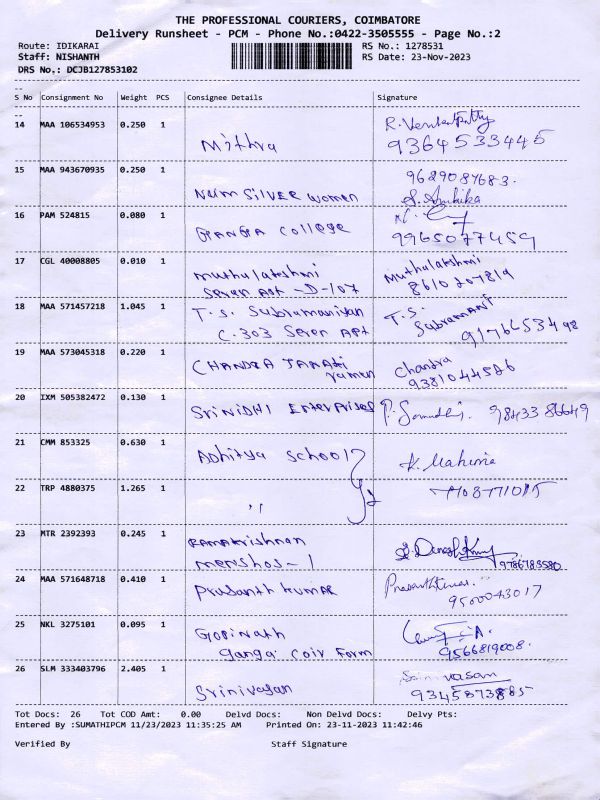 THE PROFESSIONAL COURIERS, COIMBATORE
Delivery Runsheet - PCM - Phone No.:0422-3505555 - Page No.:2
Route: IDIKARAI RS No.: 1278531
Staff: NISHANTH RS Date: 23-Nov-2023
DRS No.: DCJB127853102
S No Consignment No Weight PCS Consignee Details Signature
14 MAA 106534953 0.250 1 Mithra R. 9364533445
15 MAA 943670935 0.250 1 SILVER women 9629087683.
S. Ambika
16 PAM 524815 0.080 1 GANGA College 9965077459
17 CGL 40008805 0.010 1 Muthulakshmi Muthulakshmi
D-107 8610207819
18 MAA 571457218 1.045 1 T. S. Subramaniyan T. S.
C. 303 Seven APt
19 MAA 573045318 0.220 1 CHANDRA Chandra
9381044586
20 IXM 505382472 0.130 1 SriNIDHI Enterprises 98433 86649
21 CMM 853325 0.630 1 Adhitya School K. Mahima
22 TRP 4880375 1.265 1 ,,
23 MTR 2392393 0.245 1 Ramakrishnan
9786783580
24 MAA 571648718 0.410 1 Prasanth Kumar
9500043017
25 NKL 3275101 0.095 1 Gopinath
ganga Coir Form 9566819008.
26 SLM 333403796 2.405 1 Srinivasan Srinivasan
9345873885
Tot Docs: 26 Tot COD Amt: 0.00 Delvd Docs: Non Delvd Docs: Delvy Pts:
Entered By :SUMATHIPCM 11/23/2023 11:35:25 AM Printed On: 23-11-2023 11:42:46
Verified By Staff Signature